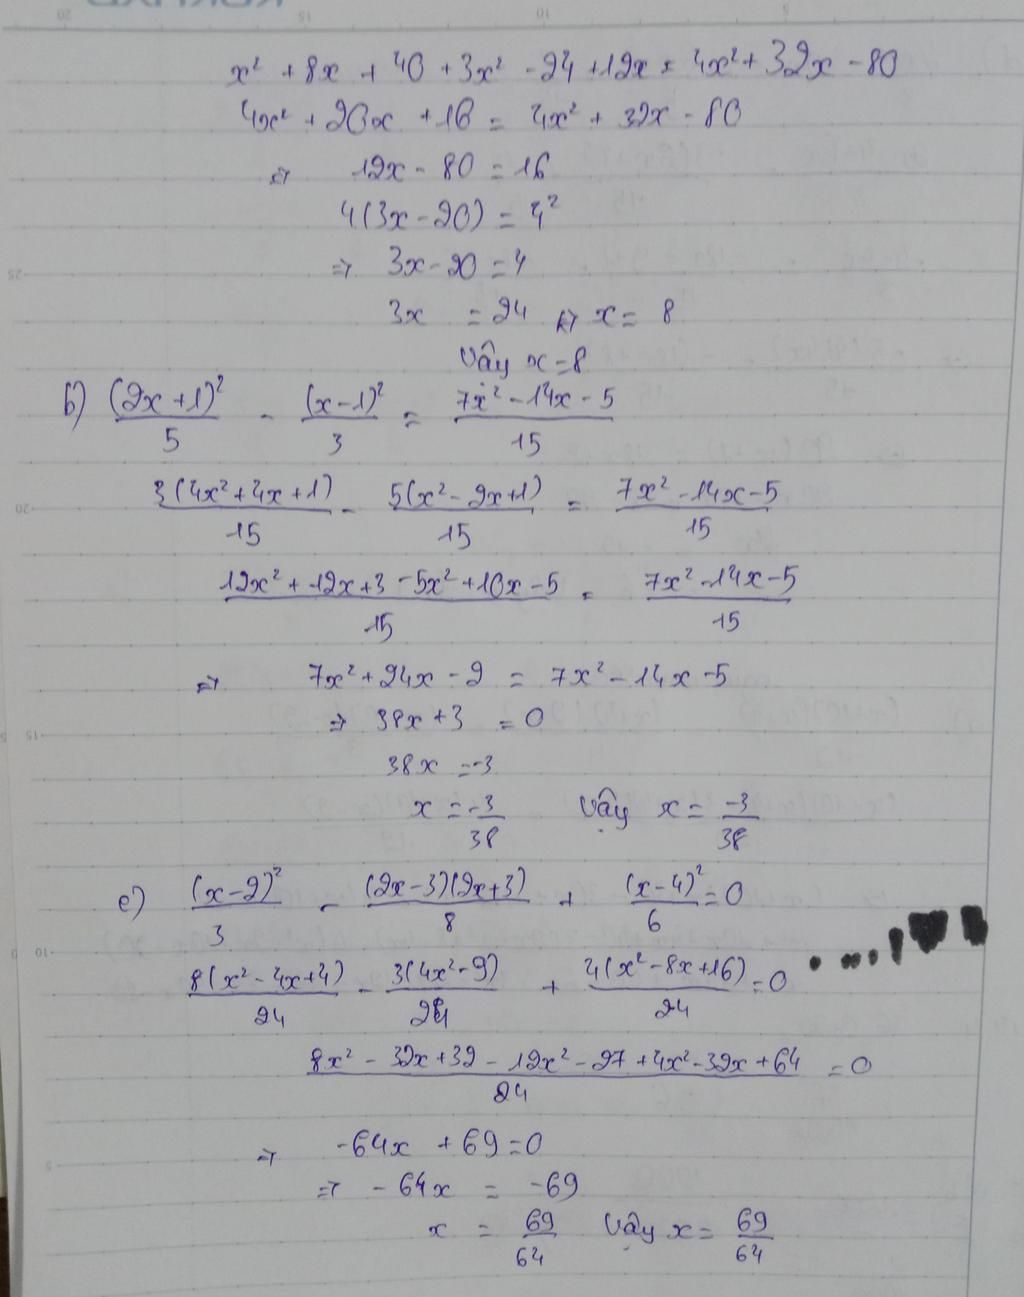 x² + 8x + 40 + 3x² - 24 + 12x = 4x² + 32x - 80
4x² + 20x + 16 = 4x² + 32x - 80
=> 12x - 80 = 16
4(3x - 20) = 4²
=> 3x - 20 = 4
3x = 24 <=> x = 8
Vậy x = 8
b) (2x + 1)²/5 - (x - 1)²/3 = (7x² - 14x - 5)/15
3(4x² + 4x + 1)/15 - 5(x² - 2x + 1)/15 = (7x² - 14x - 5)/15
(12x² + 12x + 3 - 5x² + 10x - 5)/15 = (7x² - 14x - 5)/15
=> 7x² + 24x - 2 = 7x² - 14x - 5
=> 38x + 3 = 0
38x = -3
x = -3/38 Vậy x = -3/38
c) (x - 2)²/3 - (2x - 3)(2x + 3)/8 + (x - 4)²/6 = 0
8(x² - 4x + 4)/24 - 3(4x² - 9)/24 + 4(x² - 8x + 16)/24 = 0
(8x² - 32x + 32 - 12x² - 27 + 4x² - 32x + 64)/24 = 0
=> -64x + 69 = 0
=> -64x = -69
x = 69/64 Vậy x = 69/64